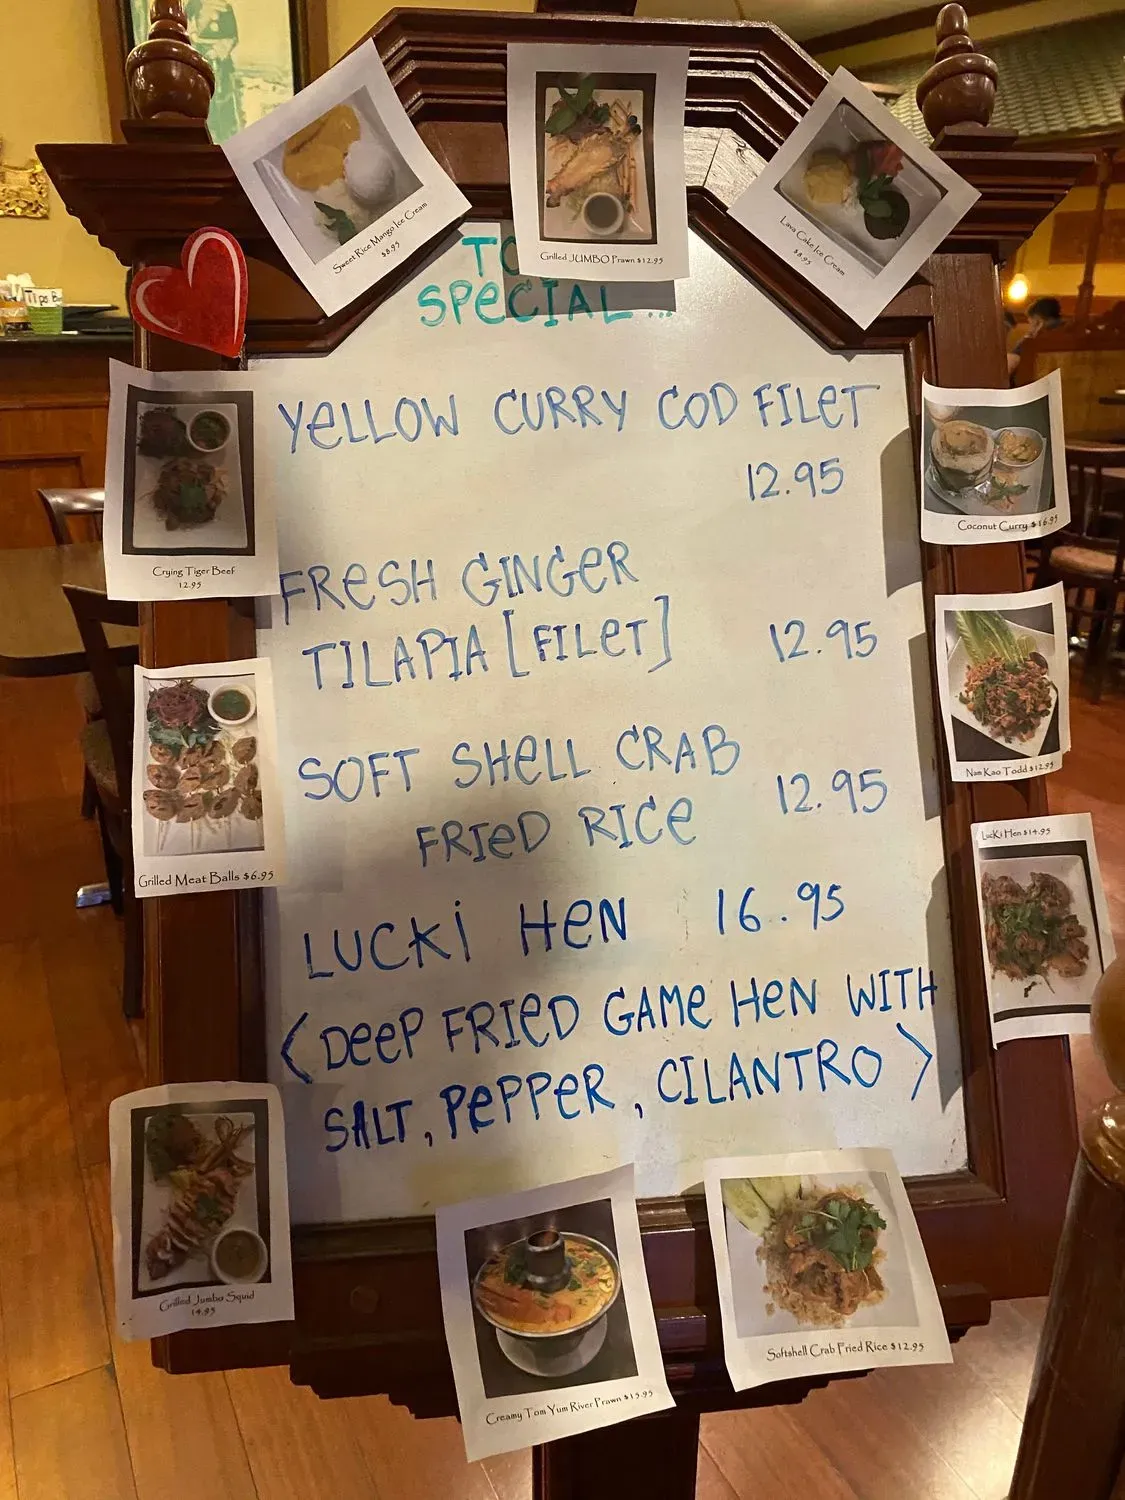 Sweet Rice Mango Ice Cream
$8.95
Grilled JUMBO Prawn $12.95
Lava Cake Ice Cream
$8.95
SPECIAL...
Tips
YELLOW CURRY COD FILET
12.95
Crying Tiger Beef
12.95
Coconut Curry $16.95
FRESH GINGER
TILAPIA [FILET] 12.95
Nam Kao Todd $12.95
SOFT SHELL CRAB
FRIED RICE 12.95
Grilled Meat Balls $6.95
LucKi Hen $14.95
LUCKi HEN 16.95
(DEEP FRIED GAME HEN WITH
SALT, PEPPER, CILANTRO)
Grilled Jumbo Squid
14.95
Creamy Tom Yum River Prawn $15.95
Softshell Crab Fried Rice $12.95